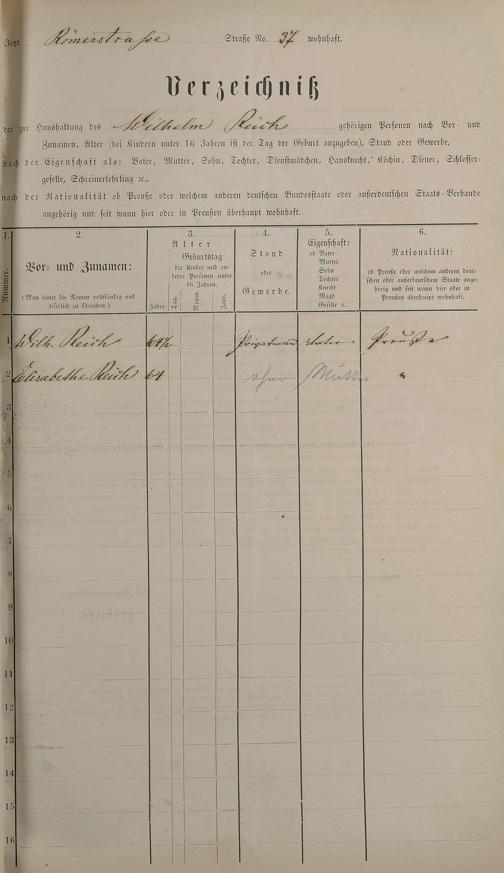 Jetzt Römerstrasse Straße No. 37 wohnhaft.
Verzeichniß
der zur Haushaltung des Wilhelm Reich gehörigen Personen nach Vor- und
Zunamen, Alter (bei Kindern unter 16 Jahren ist der Tag der Geburt anzugeben), Stand oder Gewerbe,
nach der Eigenschaft als: Vater, Mutter, Sohn, Tochter, Dienstmädchen, Hausknecht, Köchin, Diener, Schlosser-
geselle, Schreinerlehrling ꝛc.,
nach der Nationalität ob Preuße oder welchem anderen deutschen Bundesstaate oder außerdeutschen Staats-Verbande
angehörig und seit wann hier oder in Preußen überhaupt wohnhaft.
1.
Nummer.
2.
Vor- und Zunamen:
(Man bittet die Namen vollständig und
leserlich zu schreiben.)
3.
Alter
Geburtstag
der Kinder und an-
derer Personen unter
16 Jahren.
Jahre
Tag.
Monat.
Jahr.
4.
Stand
oder
Gewerbe.
5.
Eigenschaft:
ob Vater
Mutter
Sohn
Tochter
Knecht
Magd
Geselle ꝛc.
6.
Nationalität:
ob Preuße oder welchem anderen deut-
schen oder außerdeutschen Staate ange-
hörig und seit wann hier oder in
Preußen überhaupt wohnhaft.
1 Wilh. Reich Privatmann Vater Preuße
2 Elisabethe Reich 64 ohne Mutter "
3
4
5
6
7
8
9
10
11
12
13
14
15
16